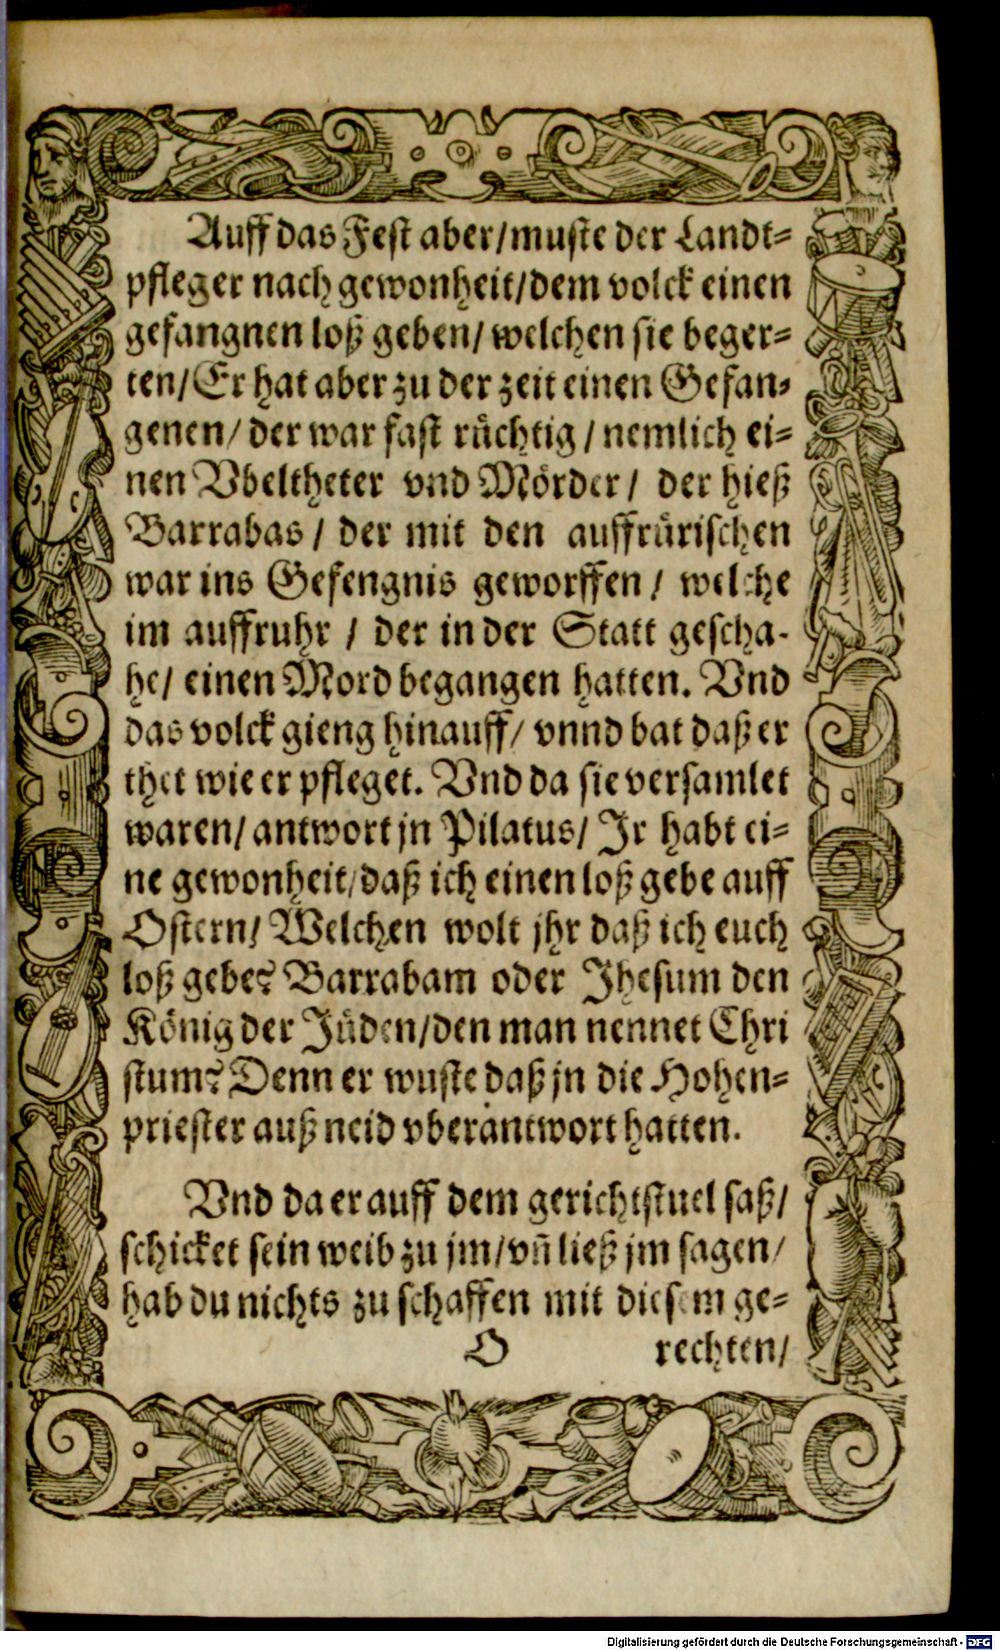 Auff das Fest aber/muste der Landt=
pfleger nach gewonheit/dem volck einen
gefangnen loß geben/ welchen sie beger=
ten/ Er hat aber zu der zeit einen Gefan=
genen/ der war fast rüchtig / nemlich ei=
nen Vbeltheter vnd Mörder/ der hieß
Barrabas / der mit den auffrürischen
war ins Gefengnis geworffen / welche
im auffruhr / der in der Statt gescha-
he/ einen Mord begangen hatten. Vnd
das volck gieng hinauff/ vnnd bat daß er
thet wie er pfleget. Vnd da sie versamlet
waren/ antwort jn Pilatus/ Jr habt ei=
ne gewonheit/daß ich einen loß gebe auff
Ostern/ Welchen wolt jhr daß ich euch
loß gebe? Barrabam oder Jhesum den
König der Jüden/den man nennet Chri
stum? Denn er wuste daß jn die Hohen=
priester auß neid vberantwort hatten.
Vnd da er auff dem gerichtstuel saß/
schicket sein weib zu jm/vñ ließ jm sagen/
hab du nichts zu schaffen mit diesem ge=
O rechten/
Digitalisierung gefördert durch die Deutsche Forschungsgemeinschaft - DFG